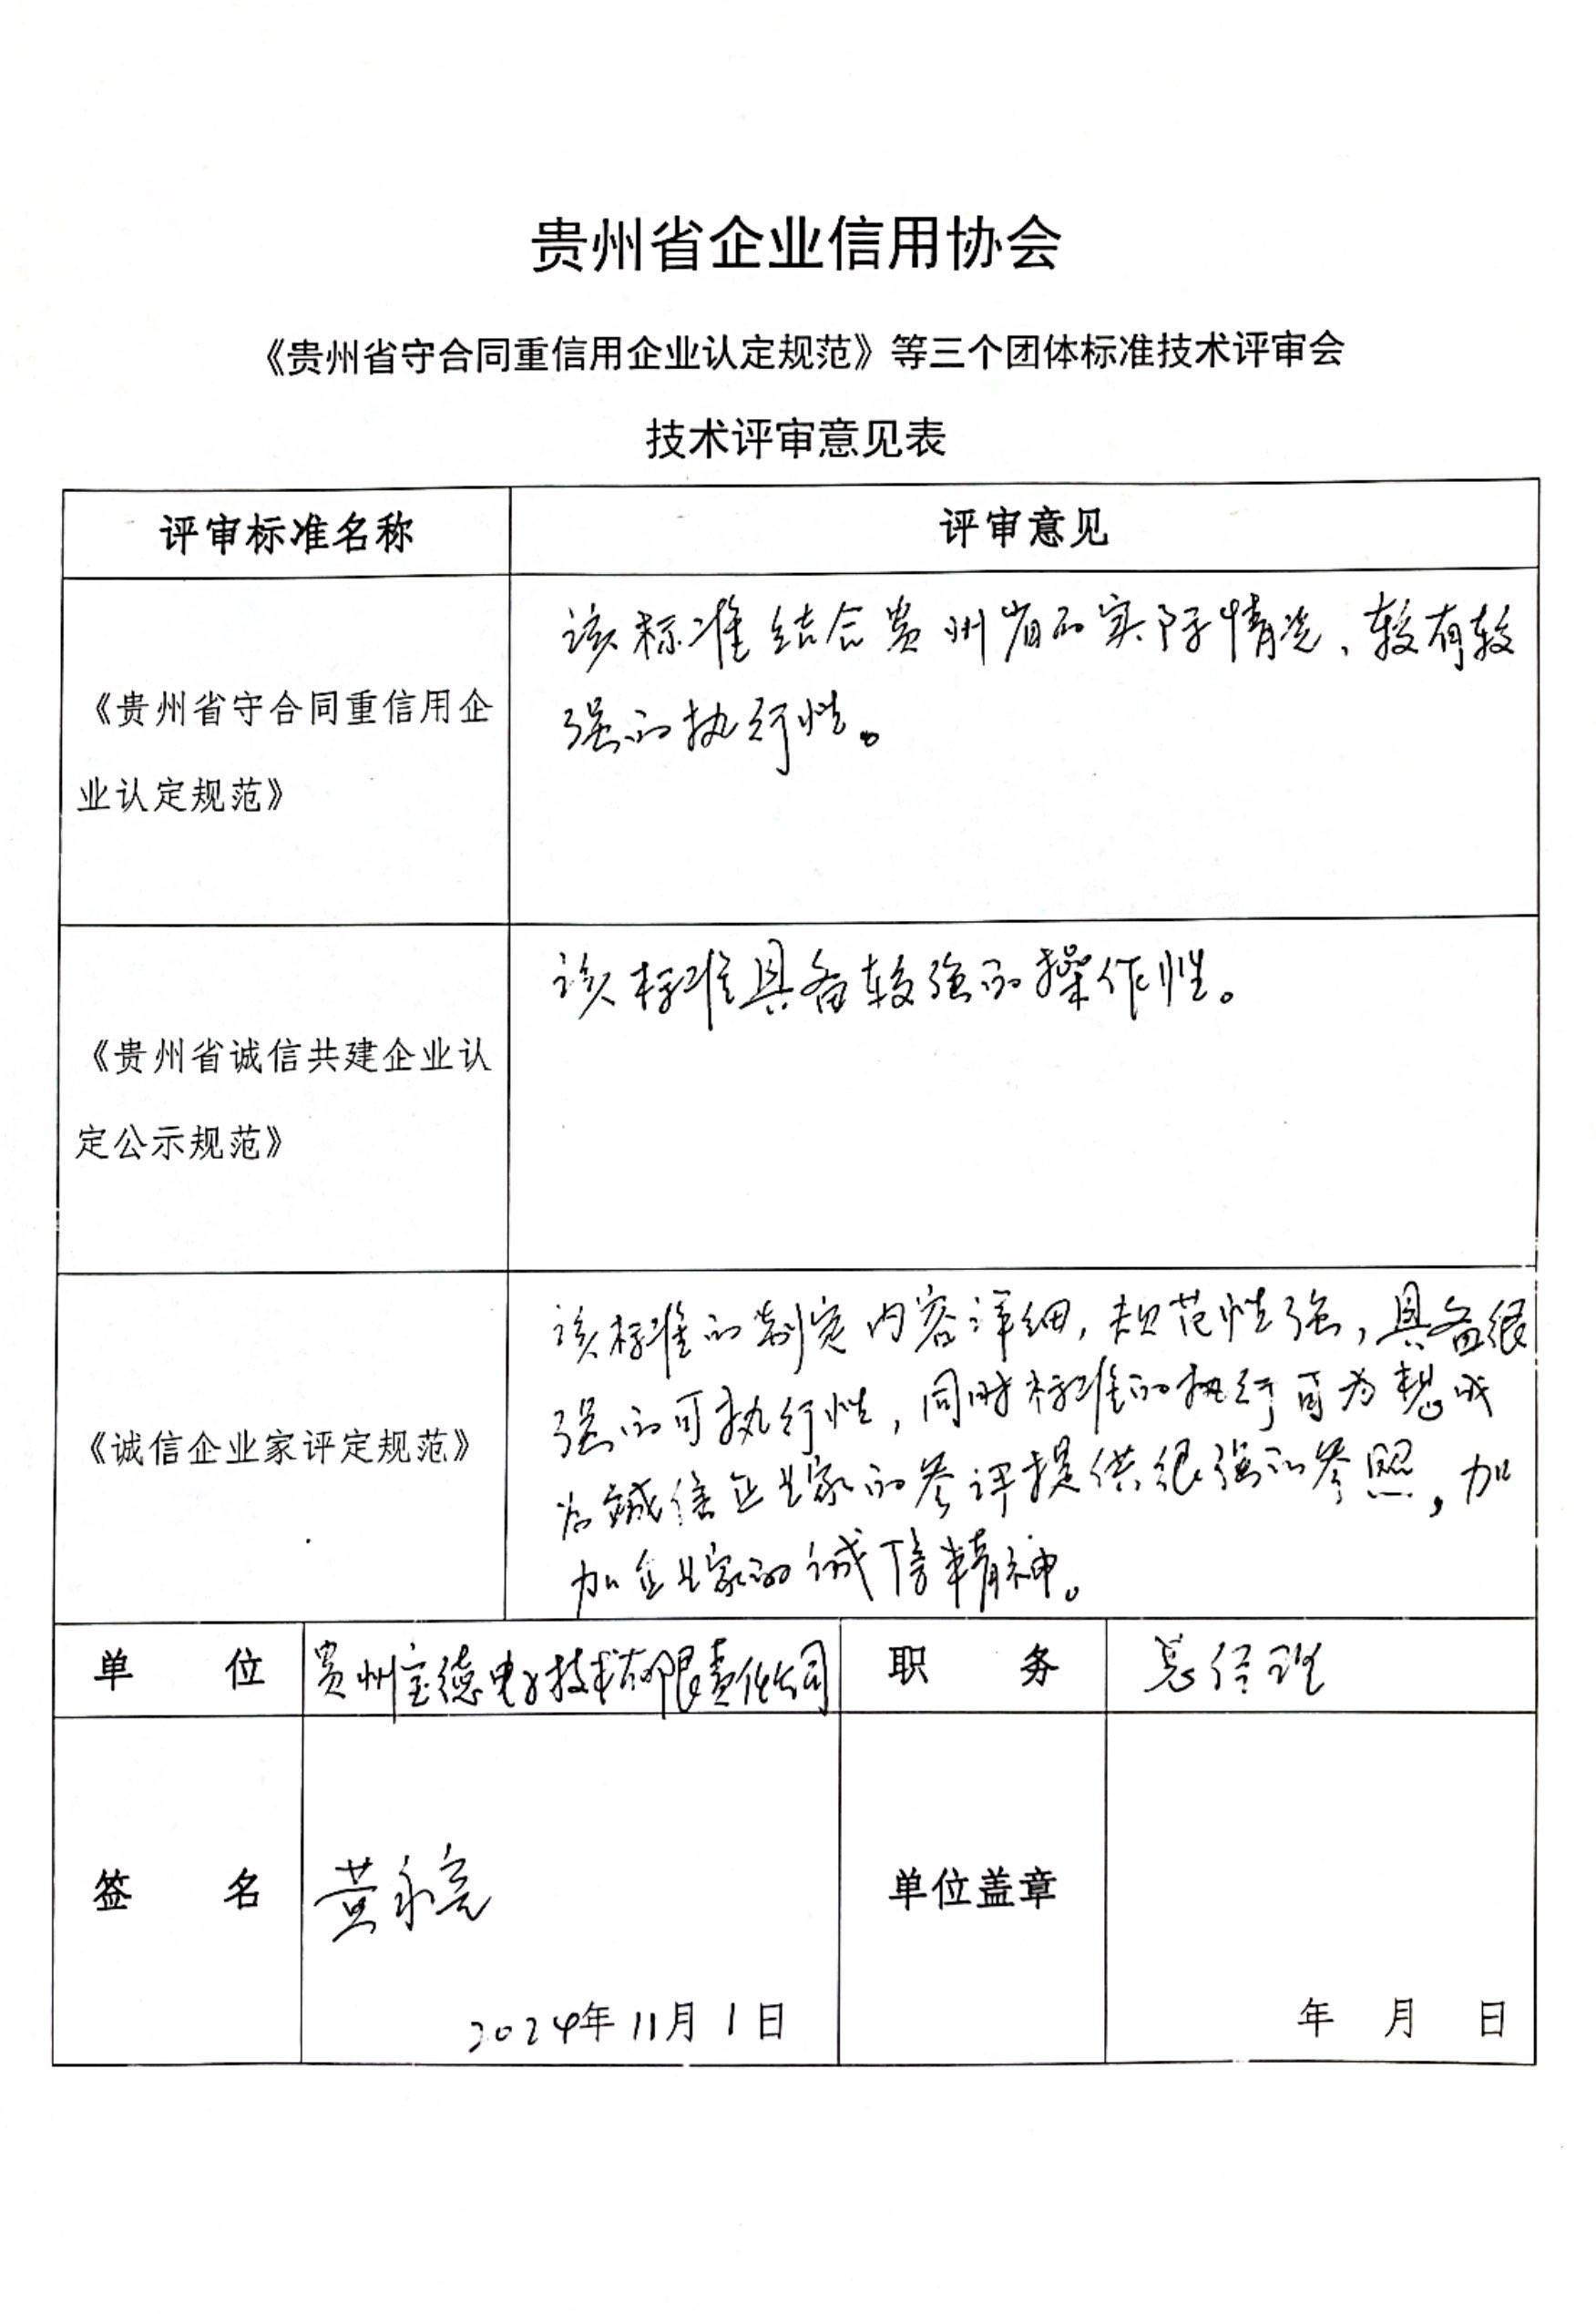 贵州省企业信用协会
《贵州省守合同重信用企业认定规范》等三个团体标准技术评审会
技术评审意见表
评审标准名称
评审意见
《贵州省守合同重信用企
业认定规范》
该标准结合贵州省的实际情况、较有较
强的执行性。
《贵州省诚信共建企业认
定公示规范》
该标准具备较强的操作性。
《诚信企业家评定规范》
该标准的制定内容详细,规范性强,具备很
强的可执行性,同时标准的执行可为想成
为诚信企业家的参评提供很强的参照,加
加企业家的诚信精神。
单 位
贵州宝德电子技术有限责任公司
职 务
总经理
签 名
黄永亮
2024年11月1日
单位盖章
年 月 日